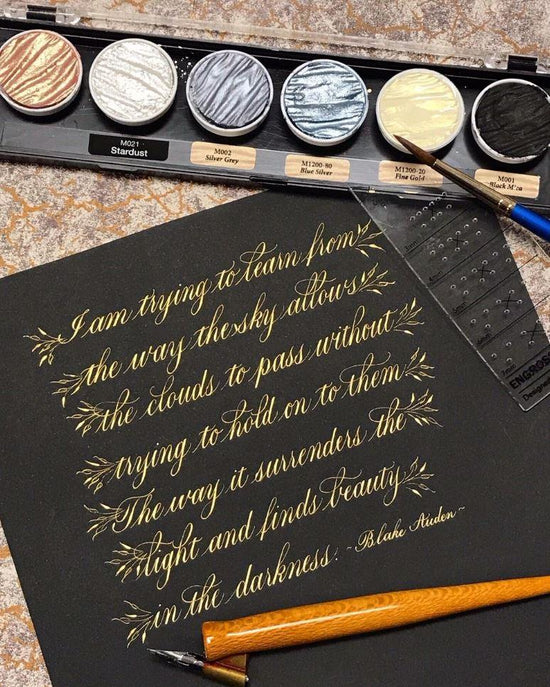 M021
Stardust
M002
Silver Grey
M1200-80
Blue Silver
M1200-20
Fine Gold
M001
Black Mica
I am trying to learn from
the way the sky allows
the clouds to pass without
trying to hold on to them
The way it surrenders the
light and finds beauty
in the darkness. ~ Blake Auden ~
ENGROS
Designe